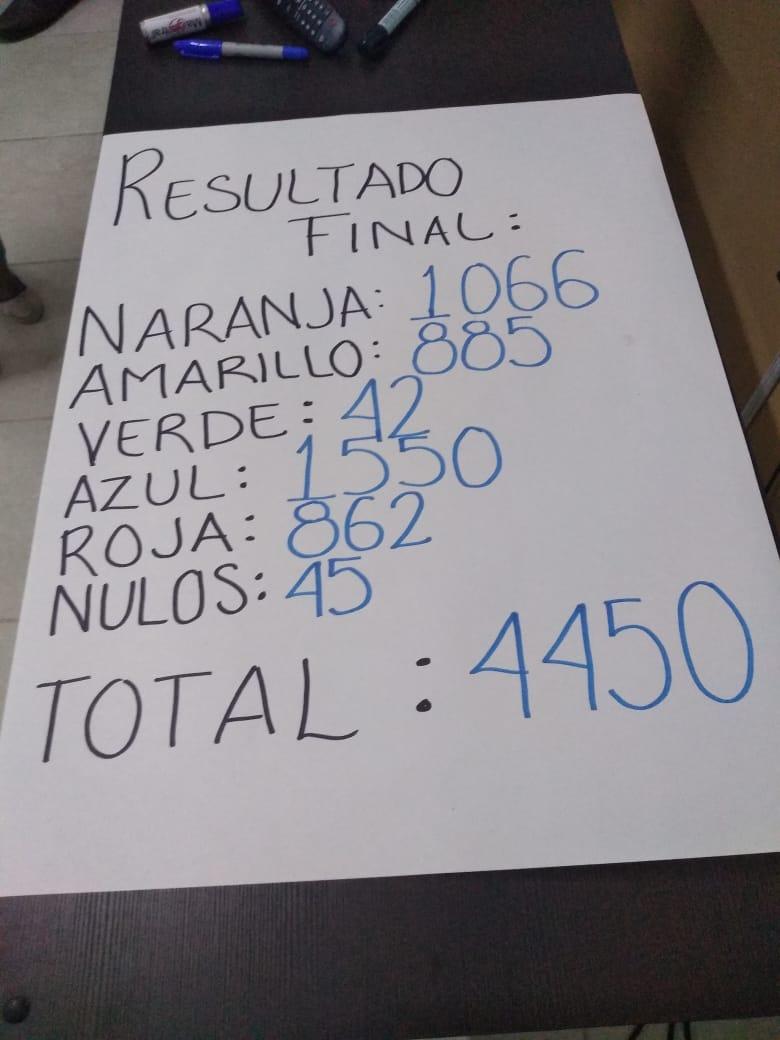 RESULTADO
FINAL:
NARANJA: 1066
AMARILLO: 885
VERDE: 42
AZUL: 1550
ROJA: 862
NULOS: 45
TOTAL: 4450